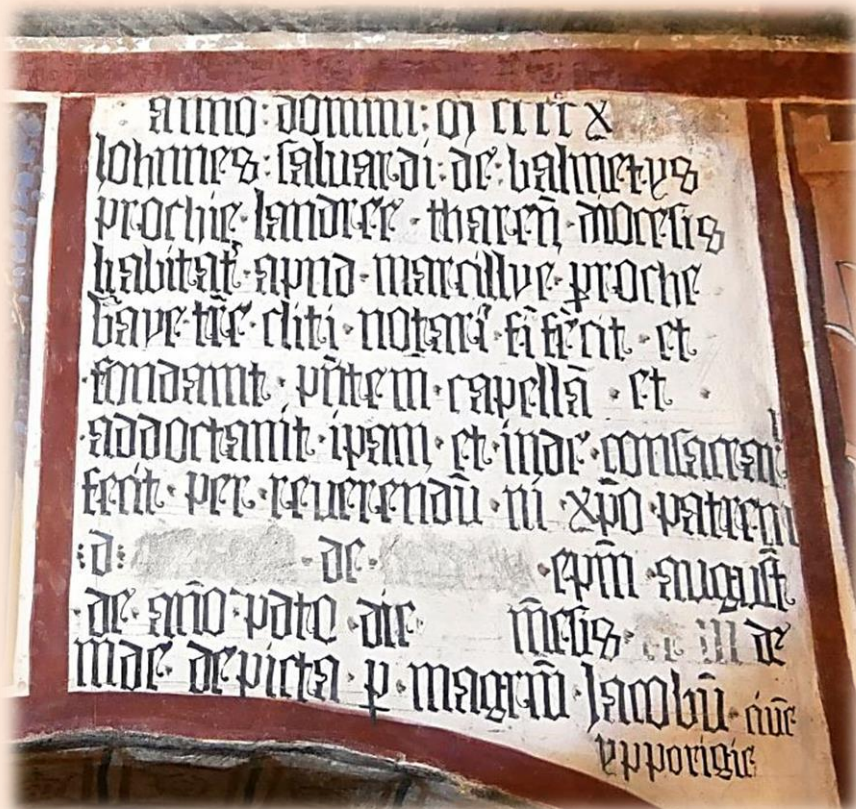 anno : domini : m cccc x
Iohnnes : saluardi : de : balmetys
prochie · landree · tharen̄ · diocesis
habitat̄ · apud · marcillye · p̱roche
Gaye · tr̄e · cliti · notarī · fi fecit · et
· fondauit · pn̄tem̄ · capellā · et ·
· addoctauit · ipam · et · inde · consacrar
fecit · per · reuerendū · ni · xp̄o · patrem
: d : · de · · epm̄ · august̄
· de · an̄o · pdto · die m̄esis · de
inde · depicta · p̱ · magrm̄ Jacobū · ciue
ypporigie